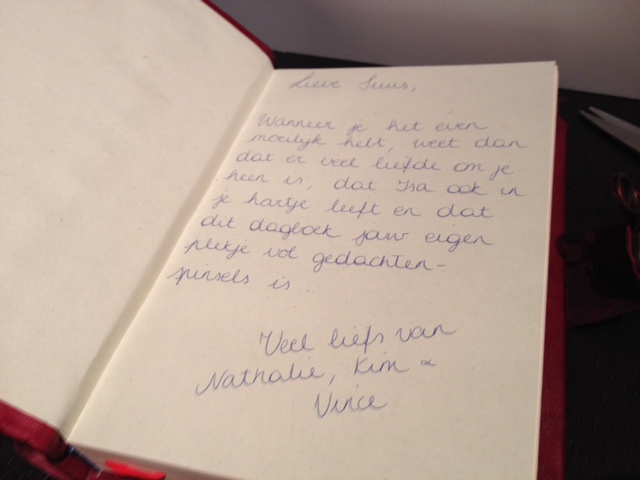 Lieve Suus,
Wanneer je het even
moeilijk hebt, weet dan
dat er veel liefde om je
heen is, dat Isa ook in
je hartje leeft en dat
dit dagboek jouw eigen
plekje vol gedachten-
spinsels is.
Veel liefs van
Nathalie, Kim &
Vince